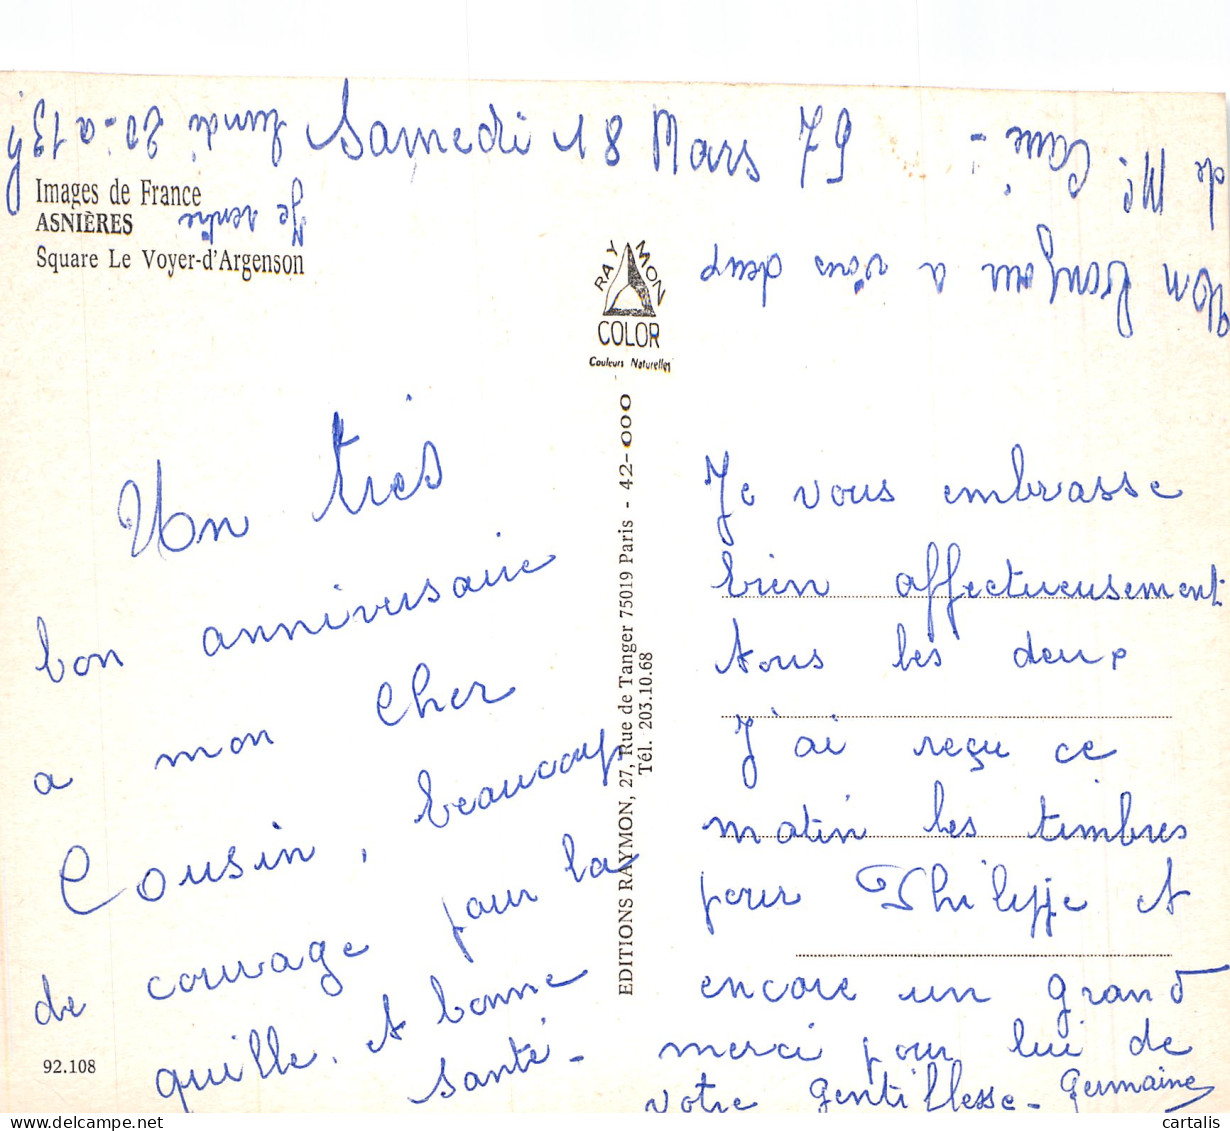 Samedi 18 Mars 79
Images de France
ASNIÈRES
Square Le Voyer-d'Argenson
Je rentre
lundi 20 - a 13h
RAYMON
COLOR
Couleurs Naturelles
Un bonjour a vous deux
de Mr.
Un très
bon anniversaire
a mon cher
Cousin, beaucoup
de courage pour la
quille. et bonne
santé -
92.108
EDITIONS RAYMON, 27, Rue de Tanger 75019 Paris - 42-000
Tél. 203.10.68
Je vous embrasse
bien affectueusement
tous les deux
J'ai reçu ce
matin les timbres
pour Philippe et
encore un grand
merci pour lui de
votre gentillesse - Germaine
cartalis